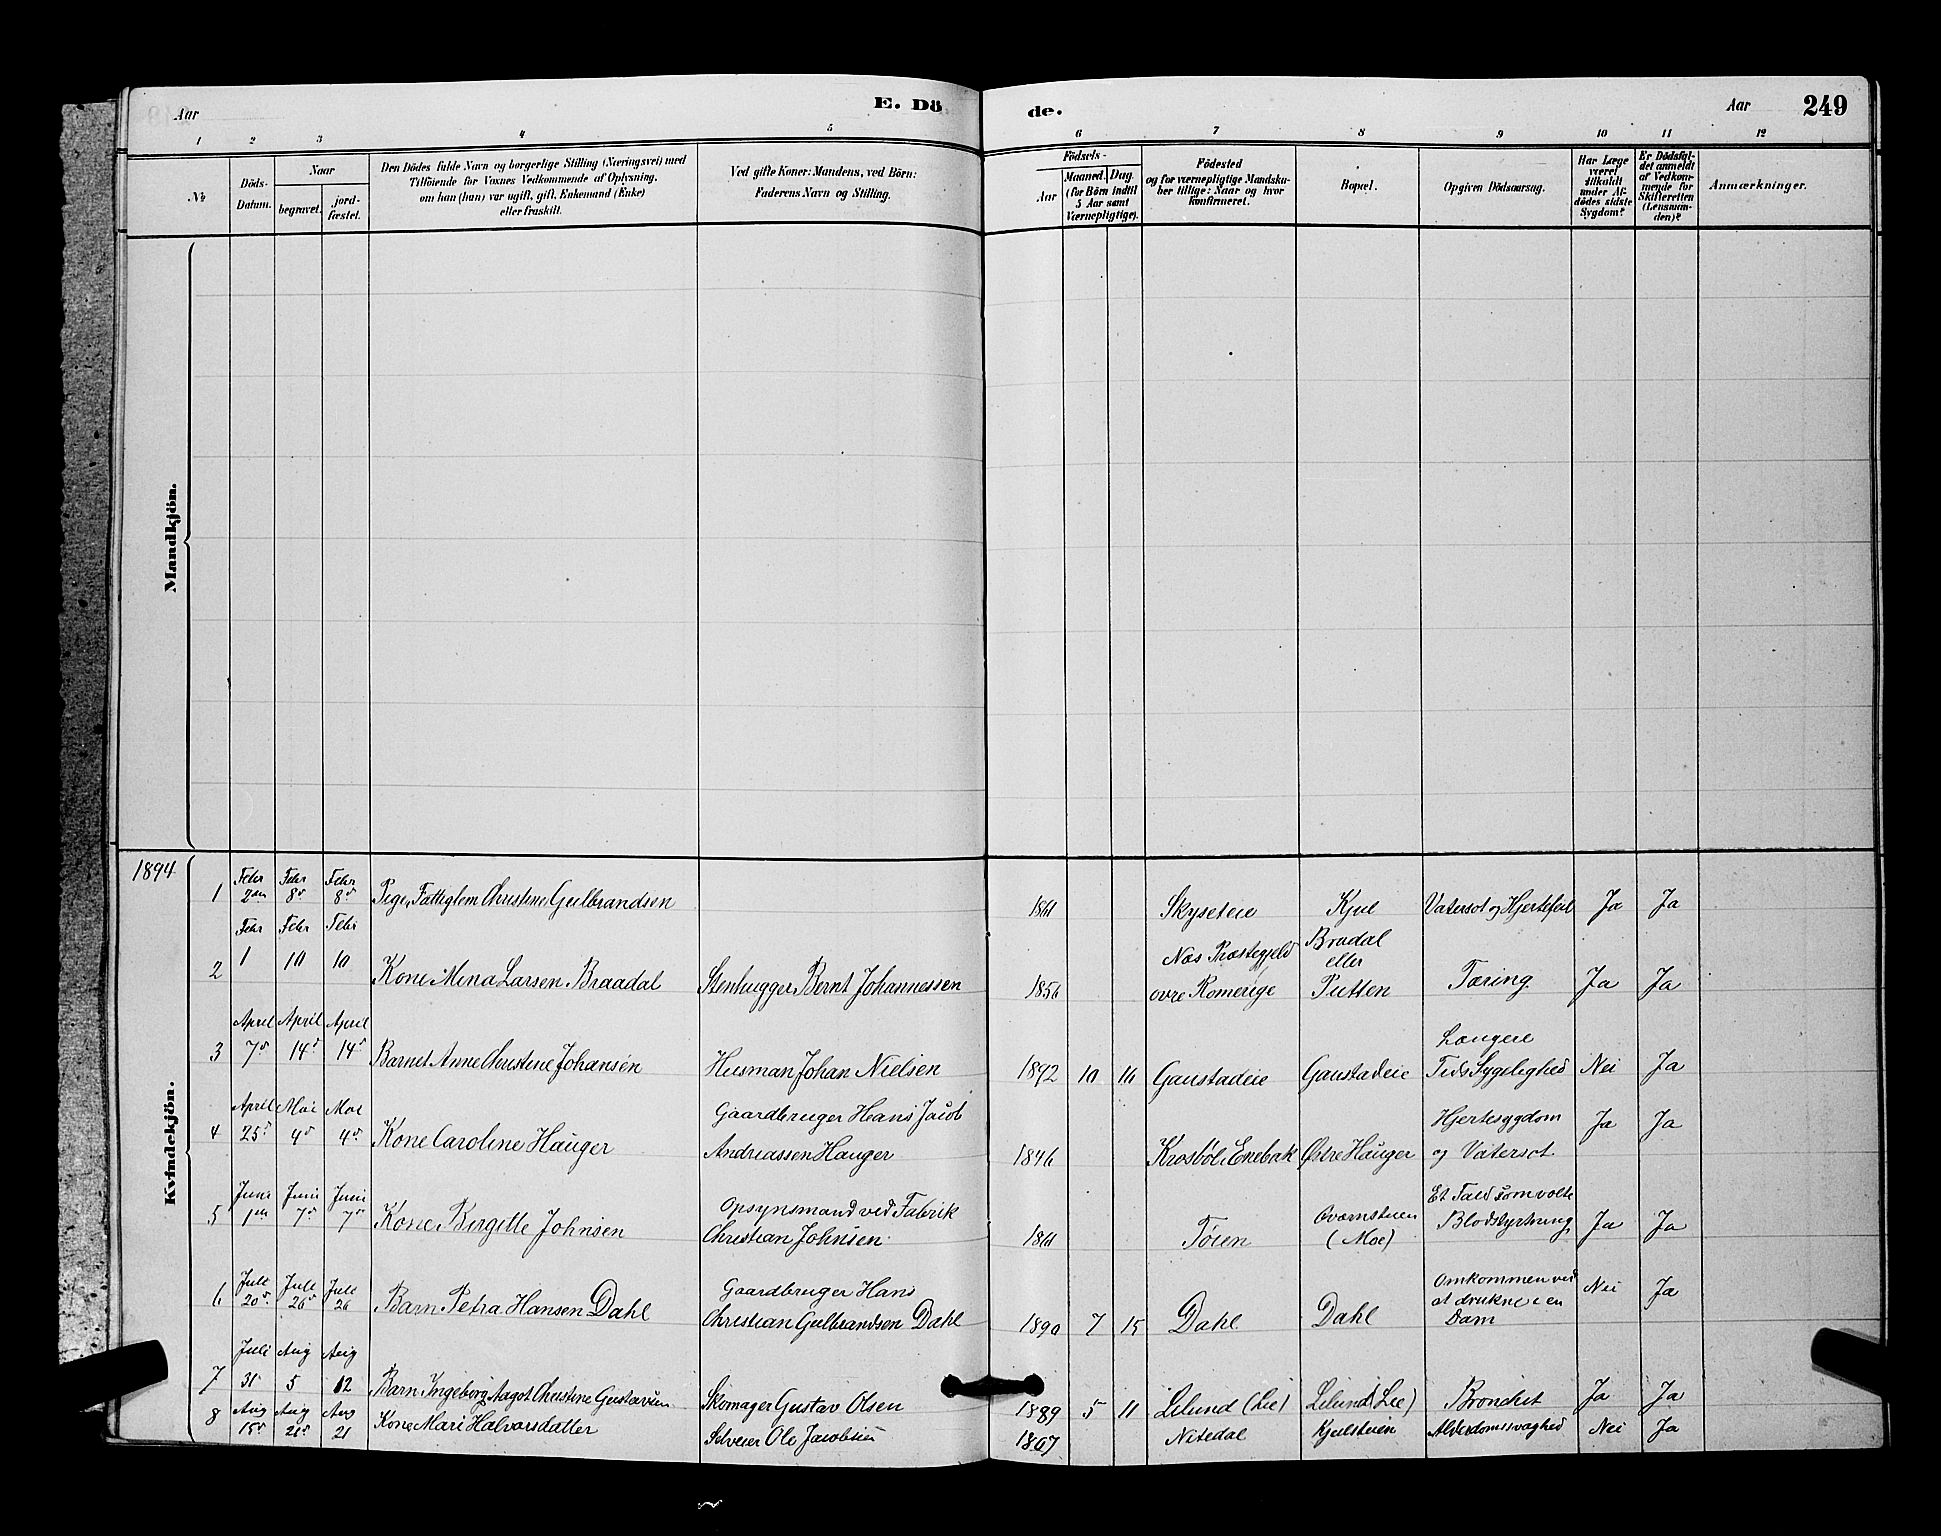 Aar
E. Dö
de.
Aar
249
1 2 3 4 5 6 7 8 9 10 11 12
№
Döds-Datum.
Naar
begravet.
jord-fæstet.
Den Dödes fulde Navn og borgerlige Stilling (Næringsvei) med
Tilföiende for Voxnes Vedkommende af Oplysning,
om han (hun) var ugift, gift, Enkemand (Enke)
eller fraskilt.
Ved gifte Koner: Mandens, ved Börn:
Faderens Navn og Stilling.
Födsels-
Aar
Maaned. Dag.
(for Börn indtil
5 Aar samt
Værnepligtige).
Födested
og for værnepligtige Mandska-
ber tillige: Naar og hvor
konfirmeret.
Bopæl.
Opgiven Dödsaarsag.
Har Læge
været
tilkaldt
under Af-
dödes sidste
Sygdom?
Er Dödsfal-
det anmeldt
af Vedkom-
mende for
Skifteretten
(Lensman-
den)?
Anmærkninger.
Mandkjön.
Kvindekjön.
1894
1 Febr 2den Febr 8de Febr 8de Pige, Fattiglem Christine Gulbrandsen 1861 Skyseteie Kjul Vatersot og Hjertefeil Ja Ja
2 Febr 1 Febr 10 Febr 10 Kone Mina Larsen Braadal Stenhugger Bernt Johannessen 1856 Næs Præstegjeld øvre Romerige Bradal eller Putten Tæring Ja Ja
3 April 7de April 14de April 14de Barnet Anne Christine Johansen Husman Johan Nielsen 1892 10 16 Gaustadeie Gaustadeie Længere Tids Sygelighed Nei Ja
4 April 25de Mai 4de Mai 4de Kone Caroline Hauger Gaardbruger Hans Jacob Andreassen Hauger 1846 Krosböl i Enebak Østre Hauger Hjertesygdom og Vatersot Ja Ja
5 Juni 1ste Juni 7de Juni 7de Kone Birgitte Johnsen Opsynsmand ved Fabrik Christian Johnsen 1861 Töien Qværnstuen (Moe) Et Fald som volte Blodstyrtning Ja Ja
6 Juli 20de Juli 26de Juli 26 Barn Petra Hansen Dahl Gaardbruger Hans Christian Gulbrandsen Dahl 1890 7 15 Dahl Dahl Omkommen ved at drukne i en Dam Nei Ja
7 Juli 31 Aug 5 Aug 12 Barn Ingeborg Aagot Christine Gustavsen Skomager Gustav Olsen 1889 5 11 Lilund (Lie) Lilund (Lie) Bronchit Ja Ja
8 Aug 15de Aug 21de Aug 21 Kone Mari Halvorsdatter Selveier Ole Jacobsen 1807 Nitedal Kjulstuen Alderdomssvaghed Nei Ja